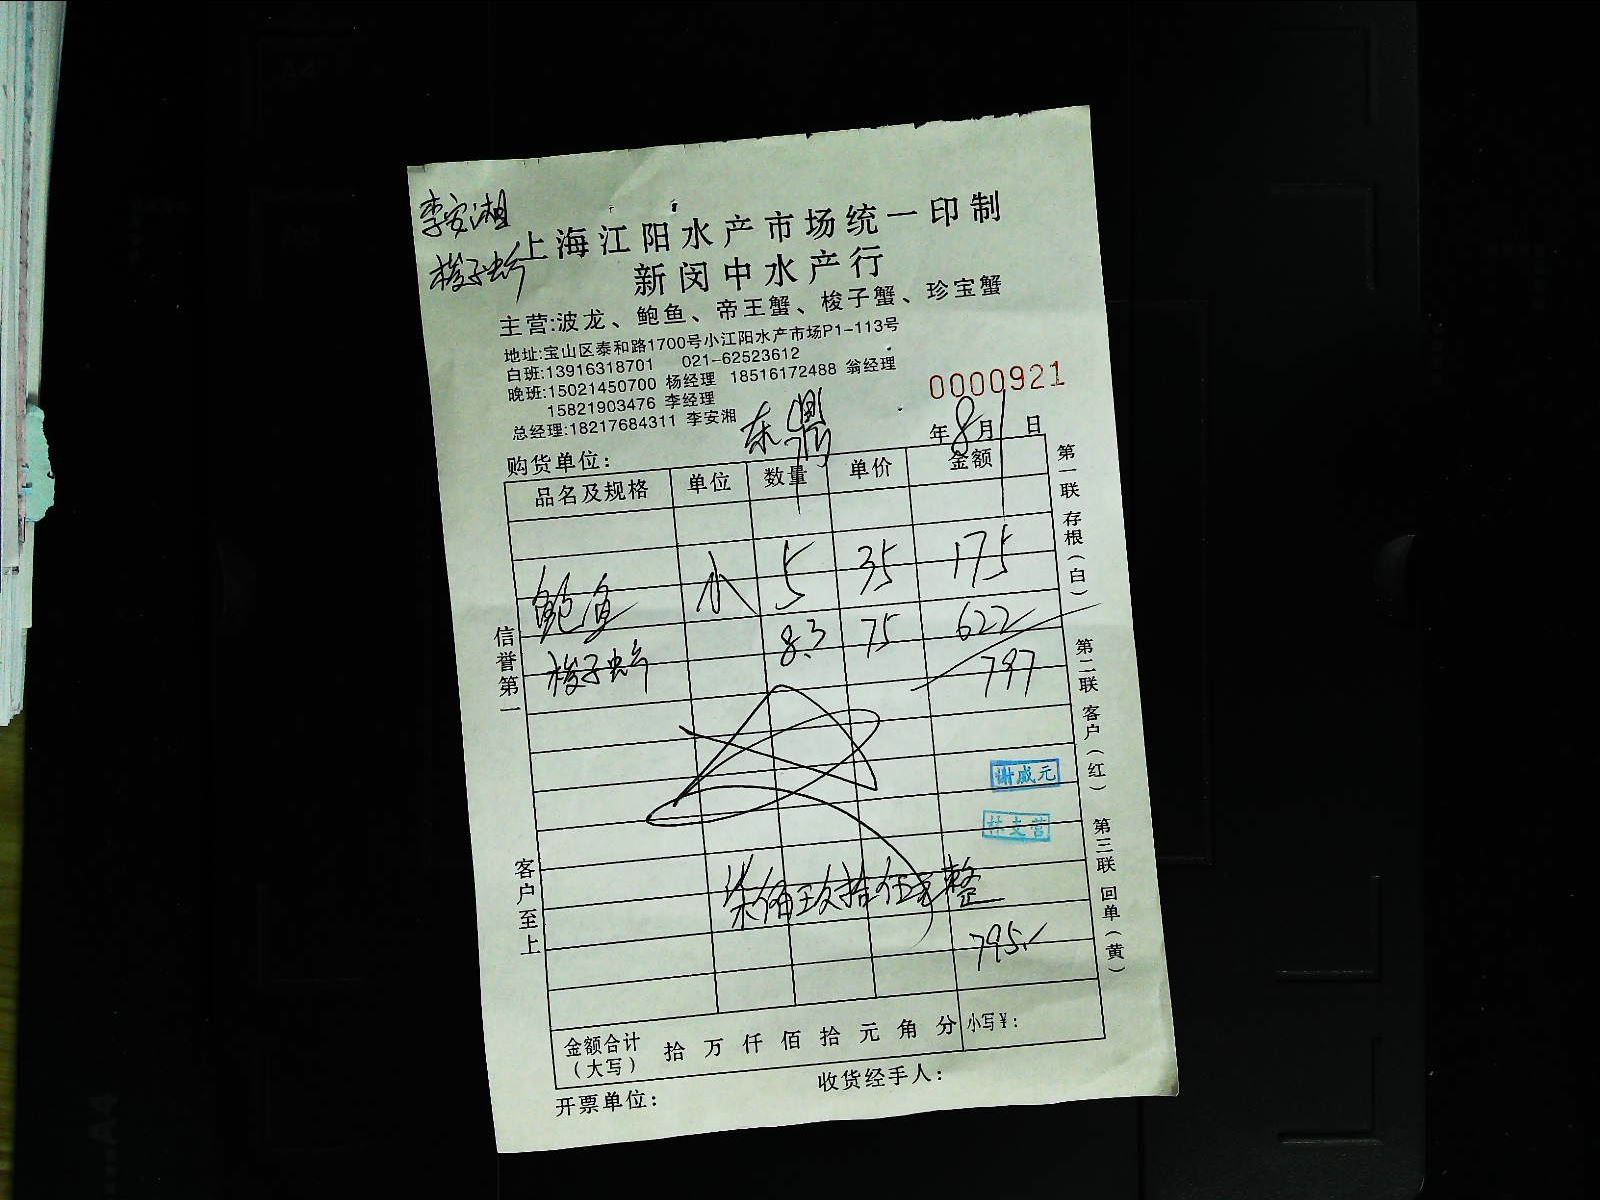 李安湘
梭子蟹
上海江阳水产市场统一印制
新闵中水产行
主营:波龙、鲍鱼、帝王蟹、梭子蟹、珍宝蟹
地址:宝山区泰和路1700号小江阳水产市场P1-113号
白班:13916318701 021-62523612
晚班:15021450700 杨经理 18516172488 翁经理
15821903476 李经理
总经理:18217684311 李安湘
0000921
购货单位: 东鼎 年8月1日
品名及规格 单位 数量 单价 金额
鲍鱼 小 5 35 175
梭子蟹 8.3 75 622
797
谢威元
柒佰玖拾伍元整
795
金额合计(大写) 拾 万 仟 佰 拾 元 角 分 小写¥:
开票单位: 收货经手人:
信誉第一
客户至上
第一联 存根(白)
第二联 客户(红)
第三联 回单(黄)